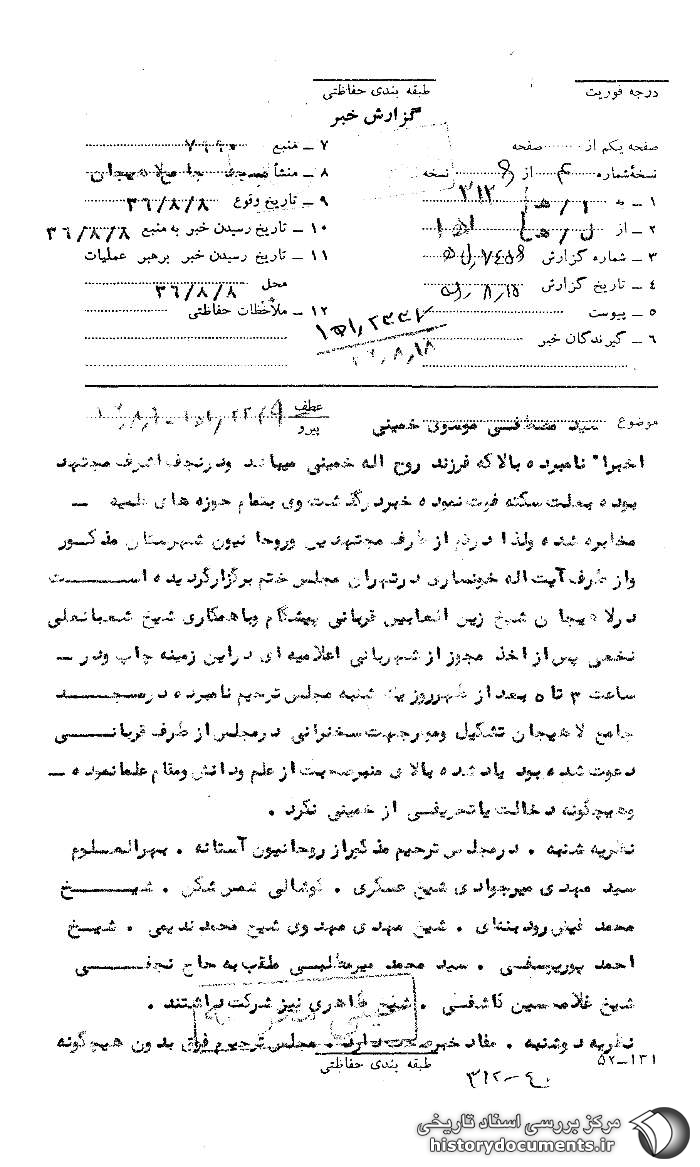 درجه فوریت
طبقه بندی حفاظتی
گزارش خبر
صفحه یکم از صفحه
نسخه شماره ۴ از نسخه
۱ ـ به ۳۱۲
۲ ـ از ۱ه۱
۳ ـ شماره گزارش
۴ ـ تاریخ گزارش ۸٫۱۵
۵ ـ پیوست
۶ ـ گیرندگان خبر
۷ ـ منبع
۸ ـ منشأ مسجد جامع لاهیجان
۹ ـ تاریخ وقوع ۳۶/۸/۸
۱۰ ـ تاریخ رسیدن خبر به منبع ۳۶/۸/۸
۱۱ ـ تاریخ رسیدن خبر برهبر عملیات
محل ۳۶/۸/۸
۱۲ ـ ملاحظات حفاظتی
۸٫۱۸
موضوع سید مصطفی موسوی خمینی
عطف
پیرو
اخیرا" نامبرده بالا که فرزند روح اله خمینی میباشد و در نجف اشرف مجتهد
بوده بعلت سکته فوت نموده خبر درگذشت وی بتمام حوزه های علمیه ـ
مخابره شده ولذا درقم از طرف مجتهدین وروحانیون شهرستان مذکور
واز طرف آیت اله خونساری درتهران مجلس ختم برگزارگردیده اســــت
درلاهیجان شیخ زین العابدین قربانی پیشگام وباهمکاری شیخ شعبانعلی
نخعی پس از اخذ مجوز از شهربانی اعلامیه ای دراین زمینه چاپ ودر ـ
ساعت ۳ تا ۵ بعد از ظهرروز یک شنبه مجلس ترحیم نامبرده درمسجـــد
جامع لاهیجان تشکیل جهت سخنرانی درمجلس از طرف قربانــــی
دعوت شده بود یاد شده بالای منبرصحبت از علم ودانش ومقام علمانموده ـ
وهیچگونه دخالت یاتعریفی از خمینی نکرد .
نظریه شنبه . درمجلس ترحیم مذکیراز روحانیون آستانه . بهرالعلــوم
سید مهدی میرجوادی شیخ عسکری . کوشالی . شیـــــخ
محمد . شیخ مهدی مهدوی شیخ محمد ندیمی . شیــخ
احمد پوریوسفی . سید محمد ملقب به حاج نجفــــی
شیخ غلامحسین کاشفی . شیخ طاهری نیز شرکت داشتند .
نظریه دوشنبه . مفاد خبرصحت دارد . مجلس ترحیم فوق بدون هیچگونه
طبقه بندی حفاظتی
۵۲ـ۱۳۱
۳۱۲-۴۰
مرکز بررسی اسناد تاریخی
historydocuments.ir